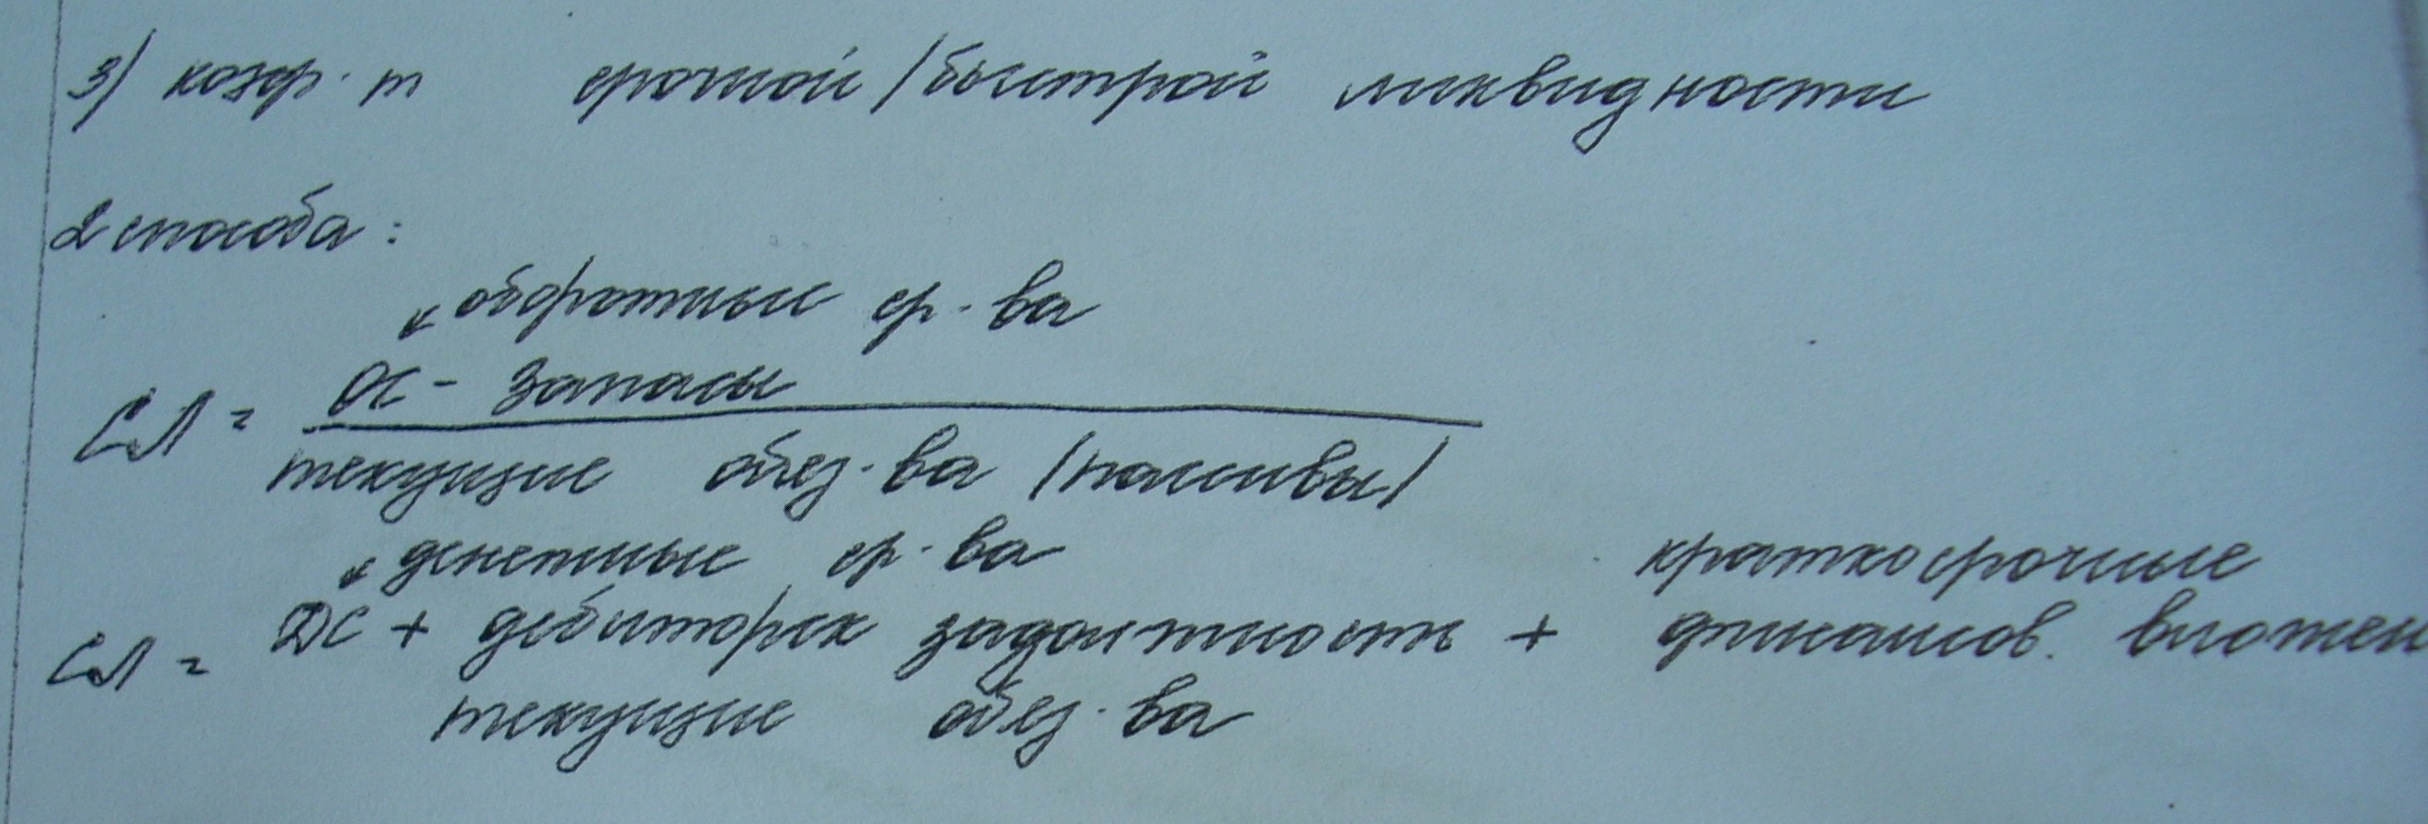 3) коэф-т срочной /быстрой ликвидности
2 способа:
оборотные ср-ва
СЛ = ОС - запасы
текущие обяз-ва /пассивы/
денежные ср-ва
краткосрочные
СЛ = ДС + дебиторск задолжность + финансов. вложен
текущие обяз-ва